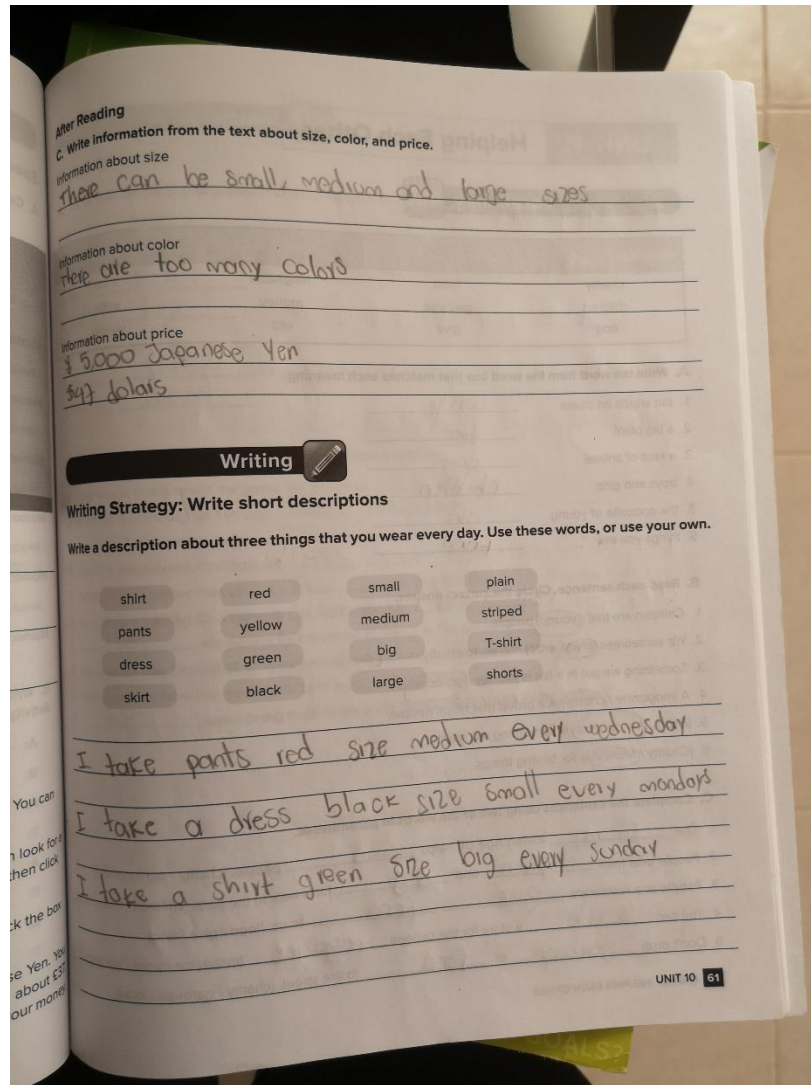 After Reading
C. Write information from the text about size, color, and price.
Information about size
There can be small, medium and large sizes
Information about color
There are too many colors
Information about price
¥ 5,000 Japanese Yen
$47 dolars
Writing
Writing Strategy: Write short descriptions
Write a description about three things that you wear every day. Use these words, or use your own.
shirt red small plain
pants yellow medium striped
dress green big T-shirt
skirt black large shorts
I take pants red size medium every wednesday
I take a dress black size small every mondays
I take a shirt green size big every sunday
You can
look for a
then click
ck the box
se Yen. You
about £37
our money
UNIT 10 61